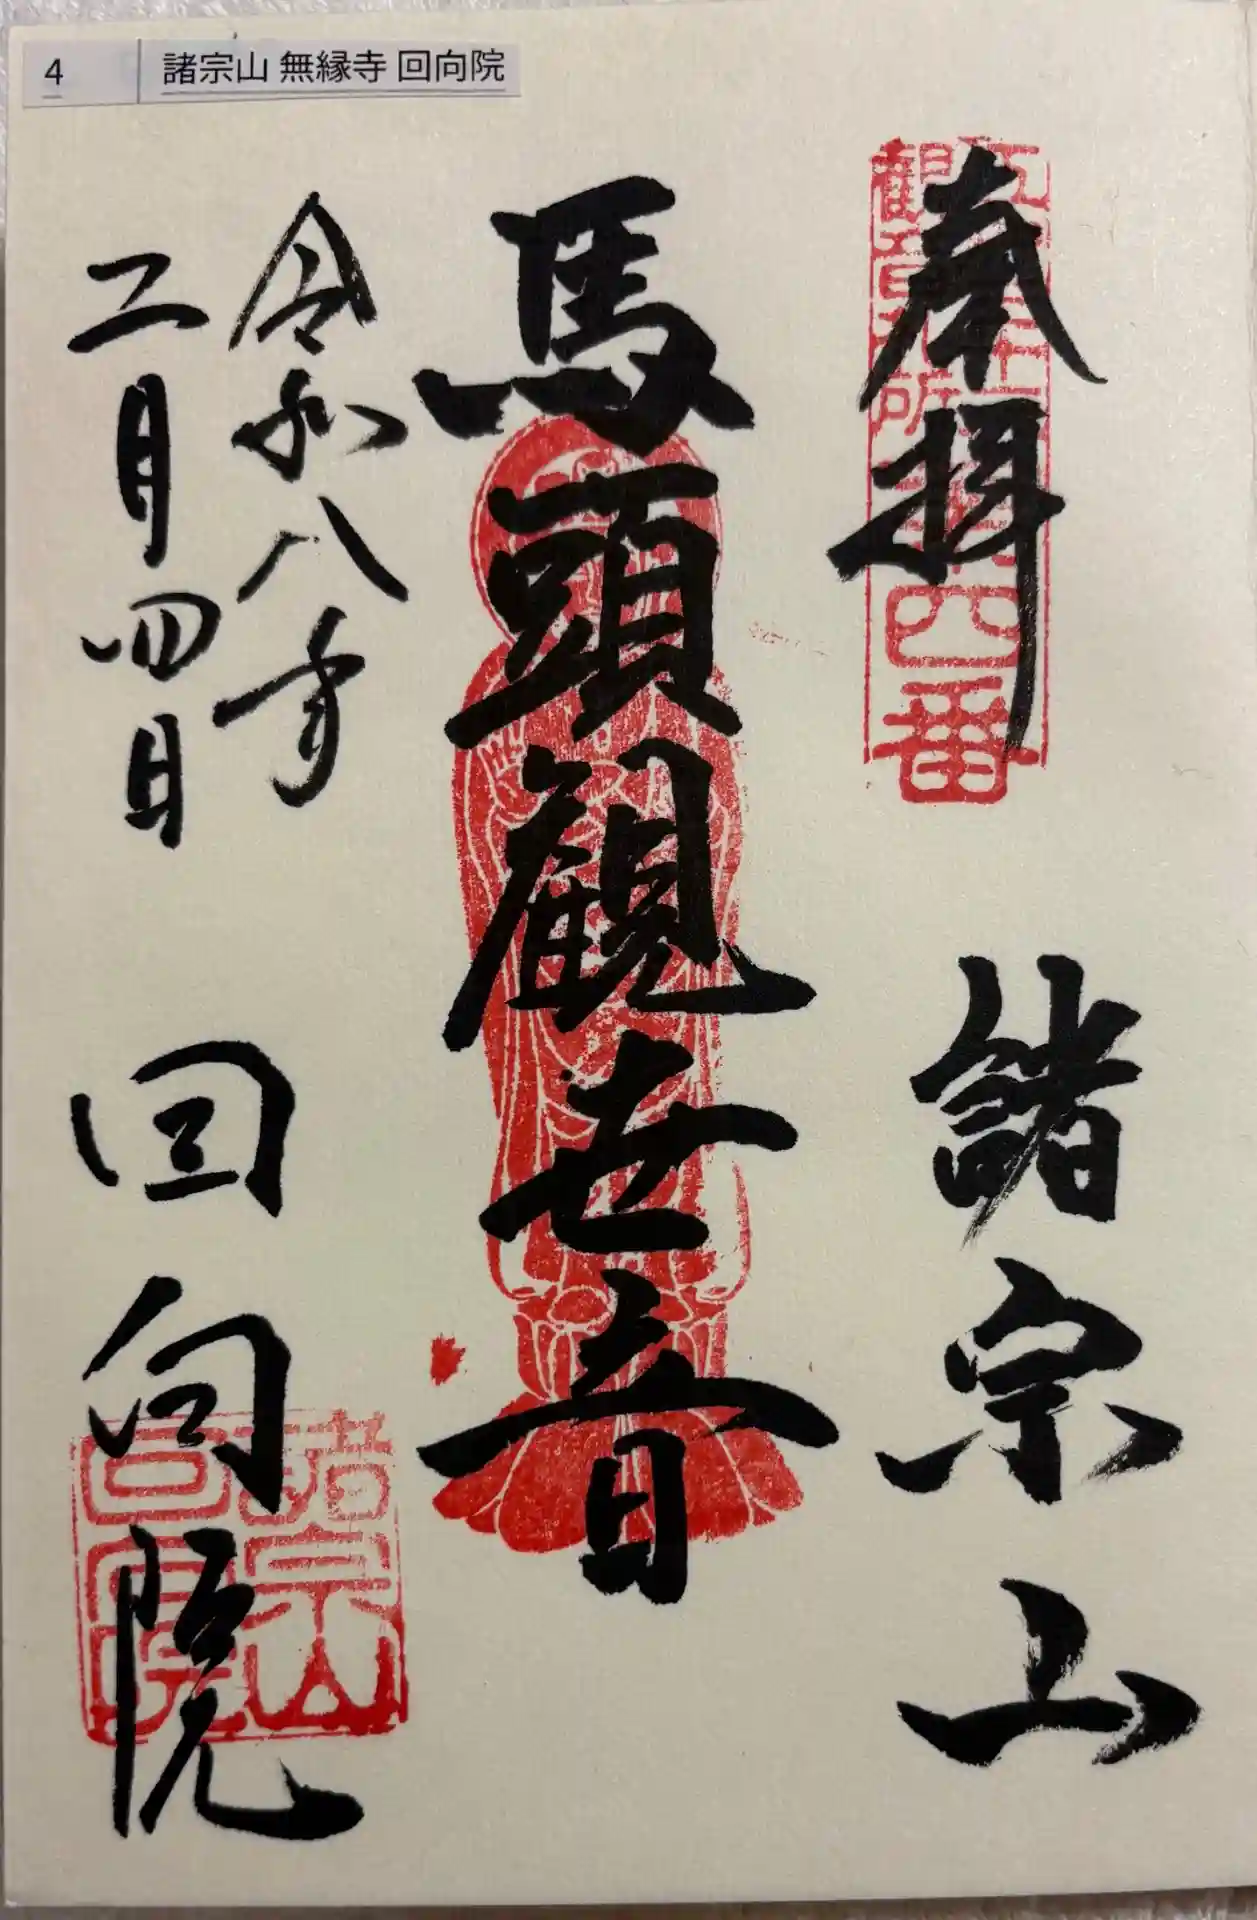 4 諸宗山 無縁寺 回向院
奉拝 諸宗山
馬頭観世音
令和八年
二月四日 回向院
観音札所
四番
諸宗山
回向院